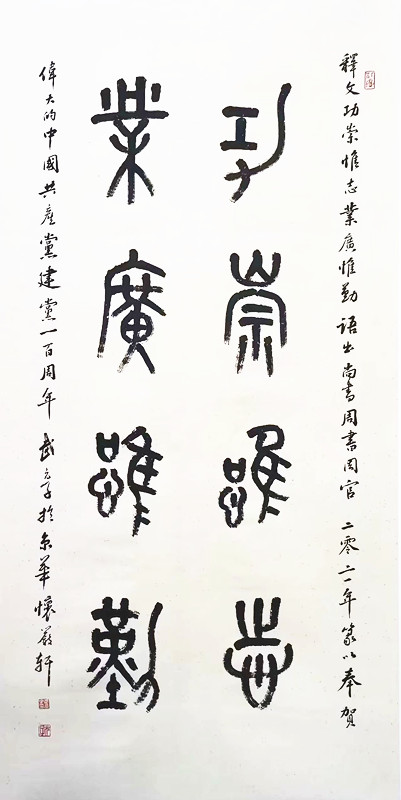 釋文功崇惟志業廣惟勤語出尚書周書周官二零二一年篆以奉賀
功崇惟志
業廣惟勤
偉大的中國共產黨建黨一百周年武元子於京華懷嚴軒